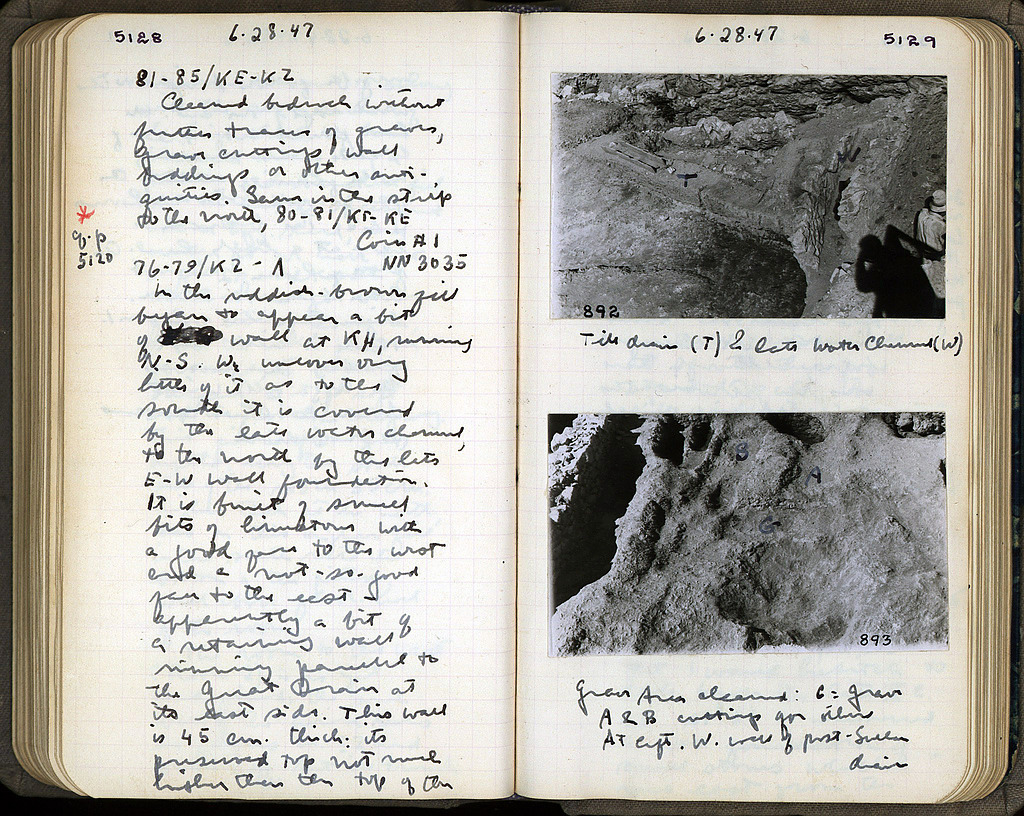 5128
6·28·47
81-85/KE-KZ
Cleared bedrock without
further traces of graves,
grave cuttings, wall
beddings or other anti-
quities. Same in the strip
to the north, 80-81/KC-KE
Coin #1
NN 3035
q.p
5120
76-79/KZ-Λ
In the reddish-brown fill
began to appear a bit
of wall at KH, running
N-S. We uncover very
little of it as to the
south it is covered
by the late water channel,
to the north by the late
E-W wall foundation.
It is built of small
bits of limestone with
a good face to the west
and a not-so-good
face to the east -
apparently a bit of
a retaining wall
running parallel to
the Great Drain at
its east side. This wall
is 45 cm. thick; its
preserved top not much
higher than the top of the
6·28·47
5129
T
W
892
Tile drain (T) & late Water Channel (W)
B
A
G
893
Grave Area cleared: G = grave
A & B cuttings for other
At left, W. wall of post-Sullan
drain